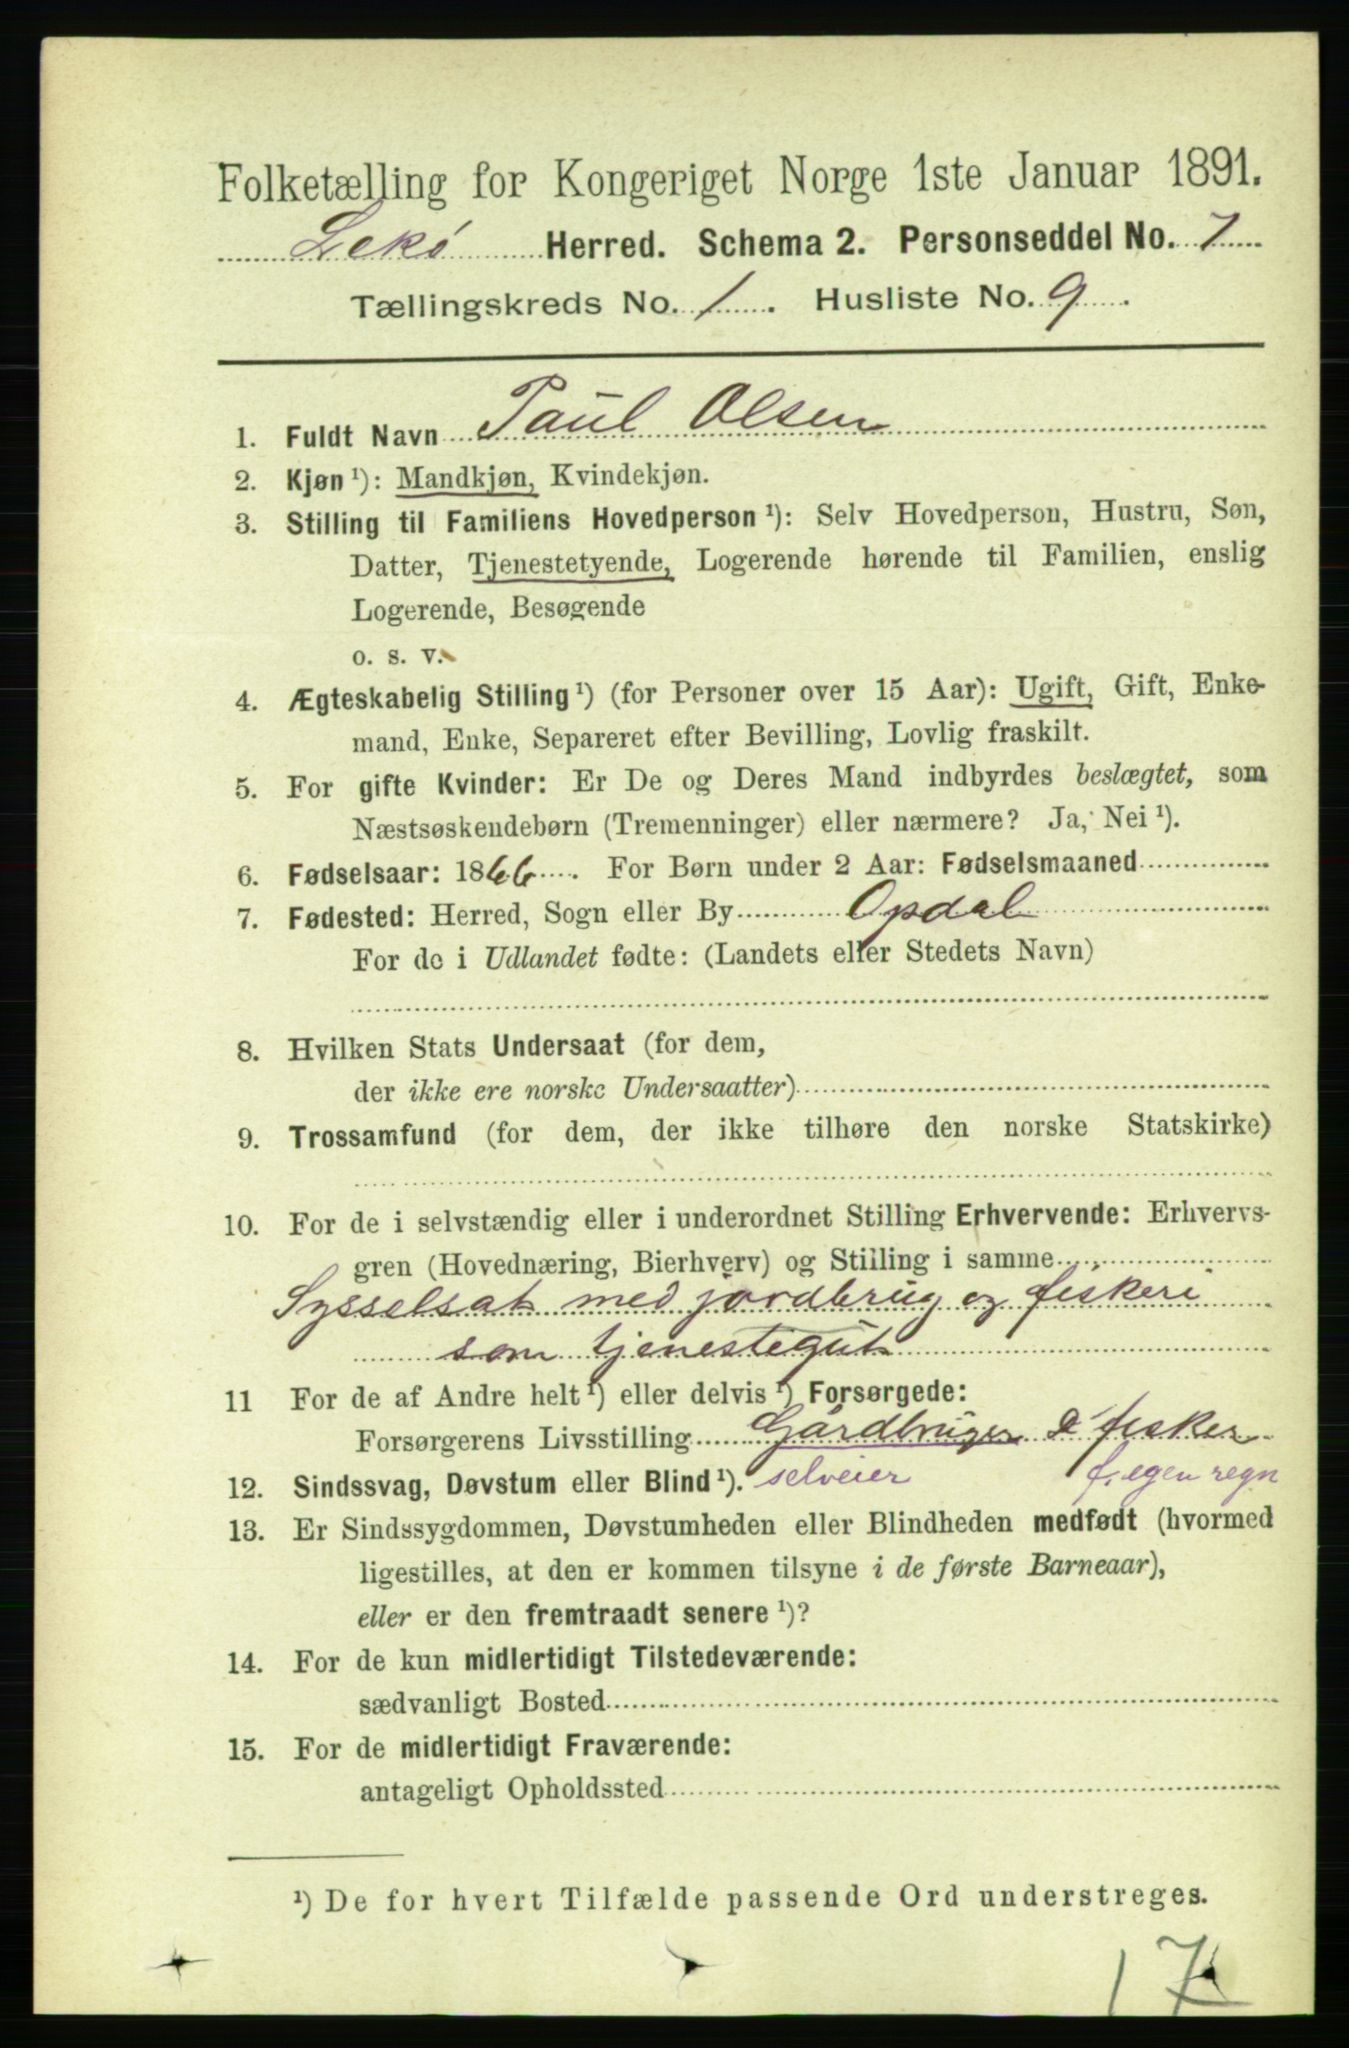 Folketælling for Kongeriget Norge 1ste Januar 1891.
Lekö Herred. Schema 2. Personseddel No. 7
Tællingskreds No. 1. Husliste No. 9.
1. Fuldt Navn Paul Olsen
2. Kjøn ¹): Mandkjøn, Kvindekjøn.
3. Stilling til Familiens Hovedperson ¹): Selv Hovedperson, Hustru, Søn,
Datter, Tjenestetyende, Logerende hørende til Familien, enslig
Logerende, Besøgende
o. s. v.
4. Ægteskabelig Stilling ¹) (for Personer over 15 Aar): Ugift, Gift, Enke-
mand, Enke, Separeret efter Bevilling, Lovlig fraskilt.
5. For gifte Kvinder: Er De og Deres Mand indbyrdes beslægtet, som
Næstsøskendebørn (Tremenninger) eller nærmere? Ja, Nei ¹).
6. Fødselsaar: 1866. For Børn under 2 Aar: Fødselsmaaned
7. Fødested: Herred, Sogn eller By Opdal
For de i Udlandet fødte: (Landets eller Stedets Navn)
8. Hvilken Stats Undersaat (for dem,
der ikke ere norske Undersaatter)
9. Trossamfund (for dem, der ikke tilhøre den norske Statskirke)
10. For de i selvstændig eller i underordnet Stilling Erhvervende: Erhvervs-
gren (Hovednæring, Bierhverv) og Stilling i samme
Sysselsat med jordbrug og fiskeri
som tjenestegut
11 For de af Andre helt ¹) eller delvis ¹) Forsørgede:
Forsørgerens Livsstilling Gårdbruger & fisker
12. Sindssvag, Døvstum eller Blind ¹). selveier f. egen regn
13. Er Sindssygdommen, Døvstumheden eller Blindheden medfødt (hvormed
ligestilles, at den er kommen tilsyne i de første Barneaar),
eller er den fremtraadt senere ¹)?
14. For de kun midlertidigt Tilstedeværende:
sædvanligt Bosted
15. For de midlertidigt Fraværende:
antageligt Opholdssted
¹) De for hvert Tilfælde passende Ord understreges.
17